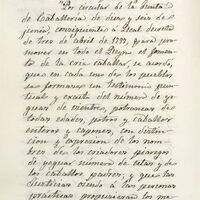 Por circular de la Junta
de Caballeria de diez y seis de
junio, consiguientes a Real decreto
de tres de abril de 1797, para pro-
mover en todo el Reyno el fomento
de la cria caballar, se acordó,
que en cada uno de los pueblos
se formase un testimonio pun-
tual y exacto del numero de ye-
guas de vientres, potrancas de
todas edades, potros y caballos
enteros y capones, con distin-
cion y expresion de los nom-
bres de los criadores piaras
de yeguas numero de estas y de
los caballos padres; y que las
Justicias oiendo a las personas
practicas propusieran los me-